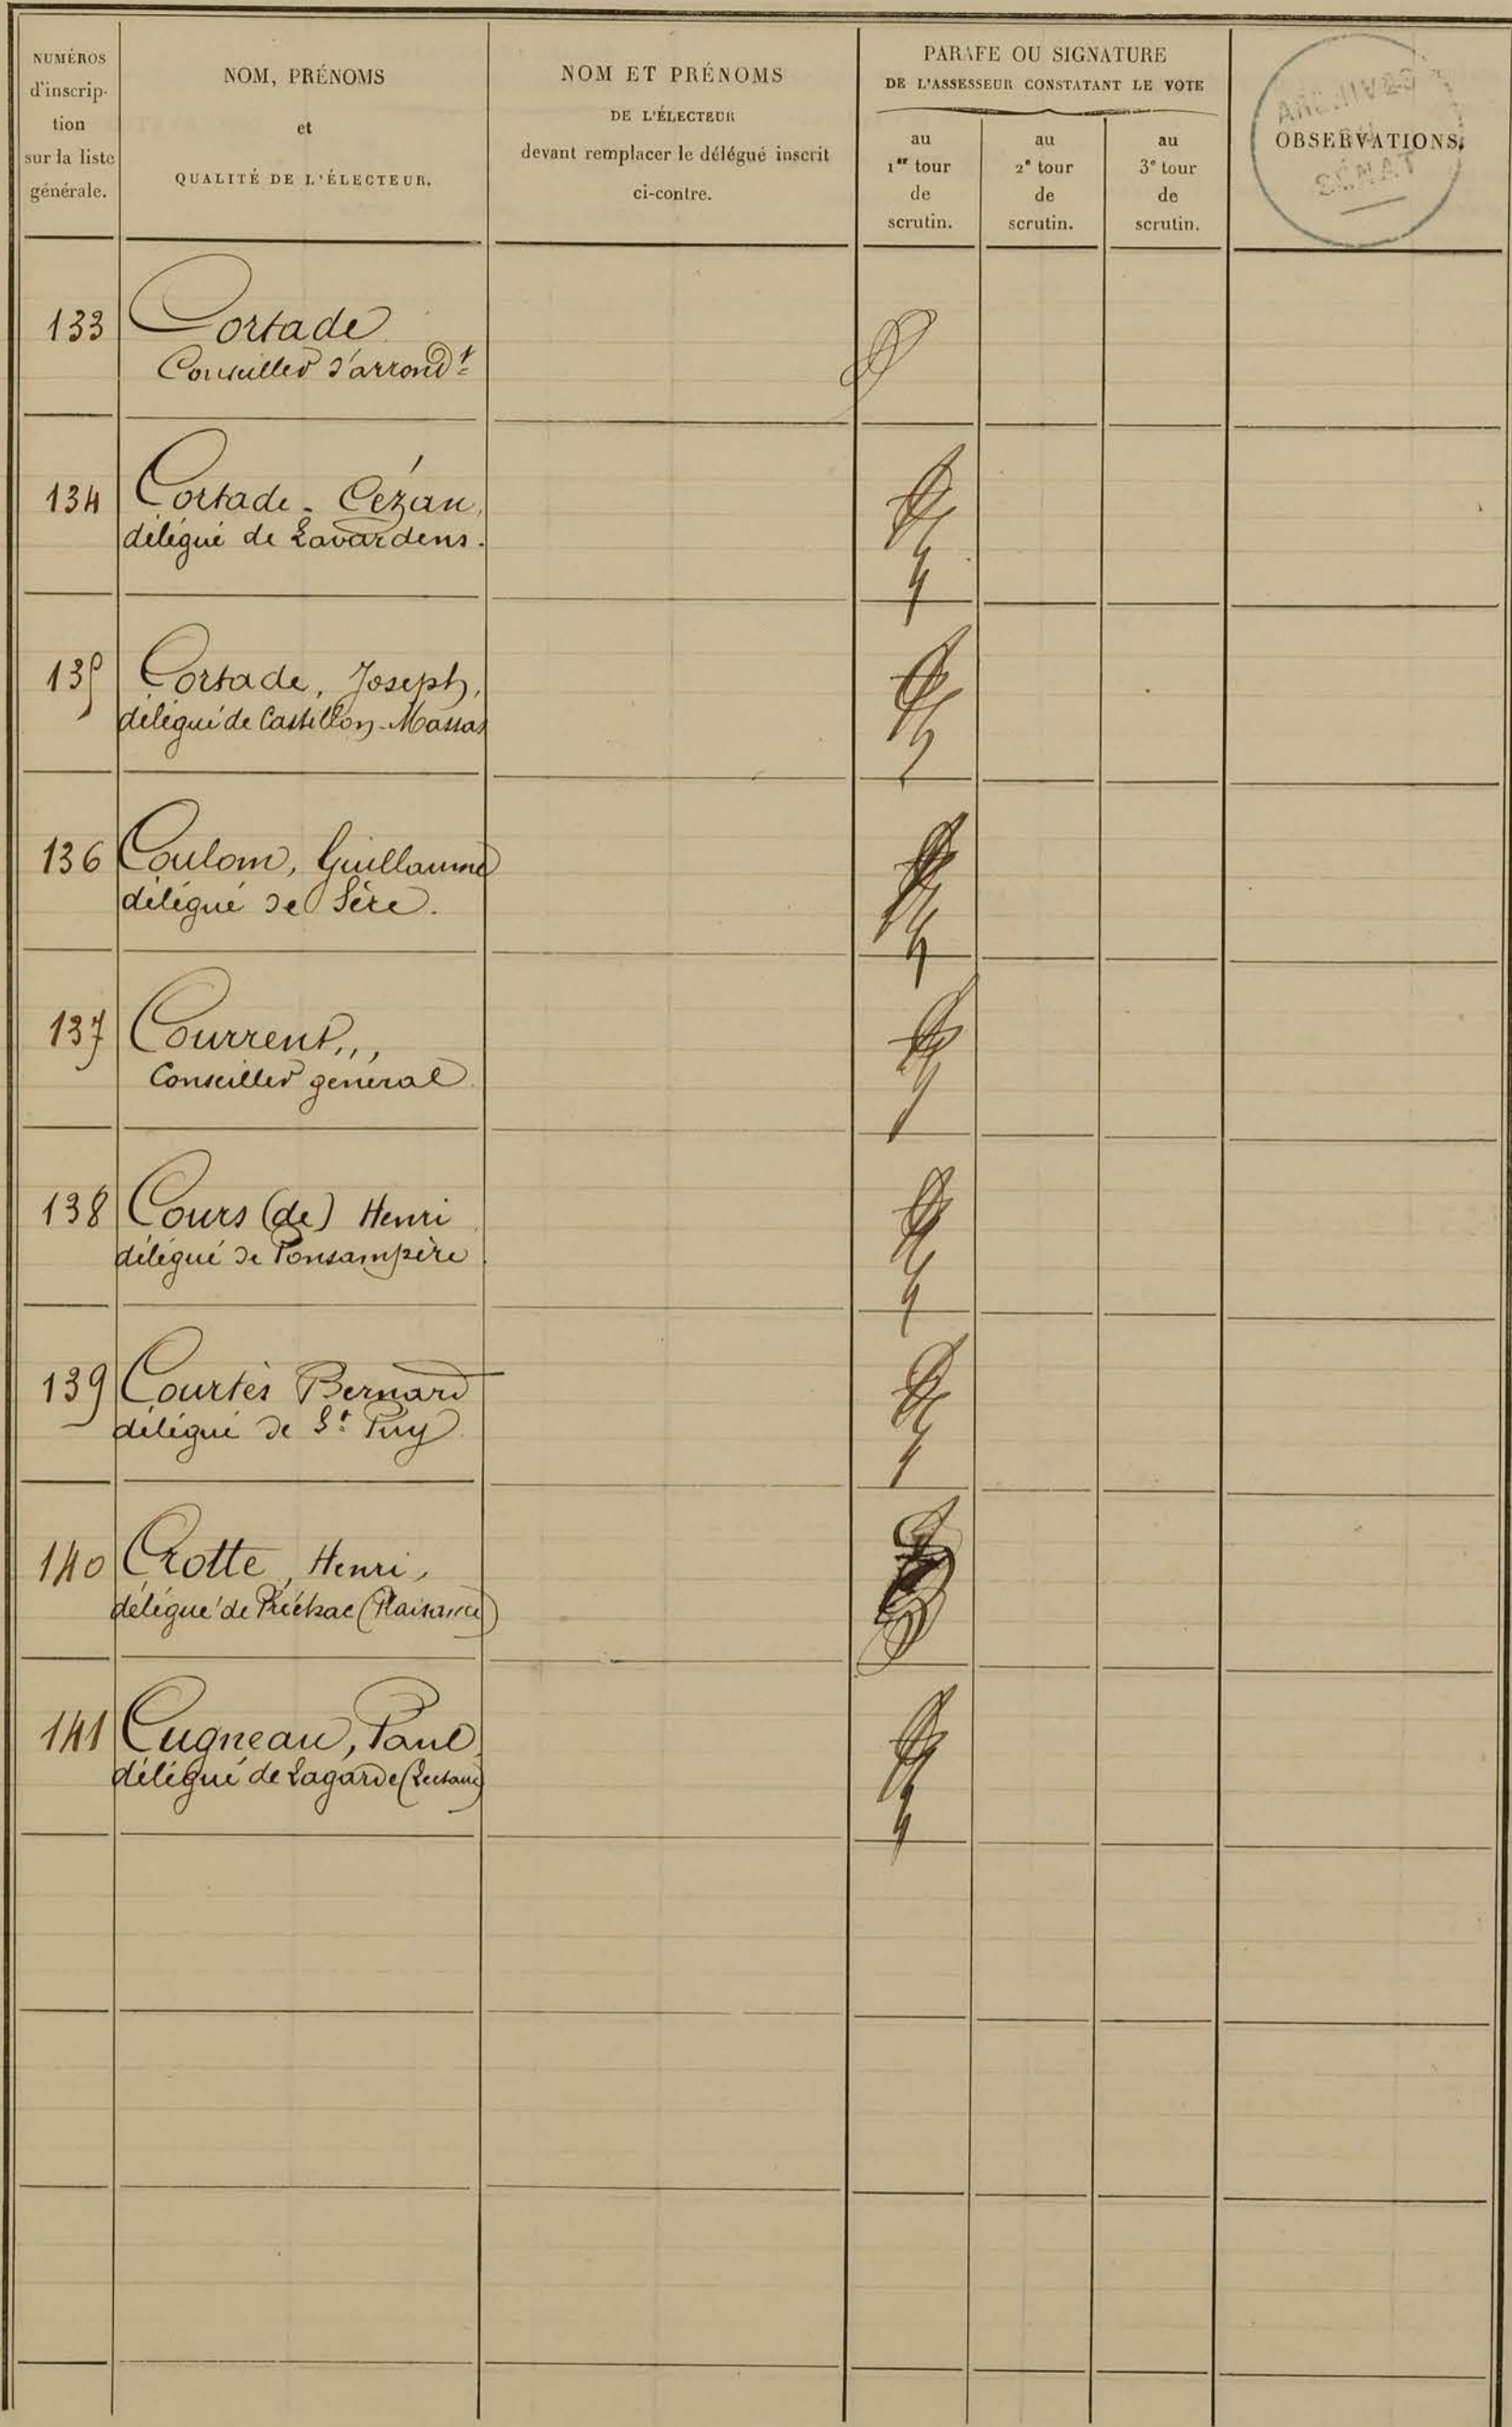 NUMÉROS
d'inscrip-
tion
sur la liste
générale.
NOM, PRÉNOMS
et
QUALITÉ DE L'ÉLECTEUR.
NOM ET PRÉNOMS
DE L'ÉLECTEUR
devant remplacer le délégué inscrit
ci-contre.
PARAFE OU SIGNATURE
DE L'ASSESSEUR CONSTATANT LE VOTE
au
1er tour
de
scrutin.
au
2e tour
de
scrutin.
au
3e tour
de
scrutin.
OBSERVATIONS.
ARCHIVES
DU
SÉNAT
133 Cortade
Conseiller d'arrondt
134 Cortade - Cézan,
délégué de Lavardens.
135 Cortade, Joseph,
délégué de Castillon-Massas
136 Coulom, Guillaume
délégué de Sère.
137 Courrent,,,
Conseiller général
138 Cours (de) Henri
délégué de Ponsampère.
139 Courtès Bernard
délégué de St Puy
140 Crotte, Henri,
délégué de Préchac (Plaisance)
141 Cugneau, Paul,
délégué de Lagarde (Lectoure)